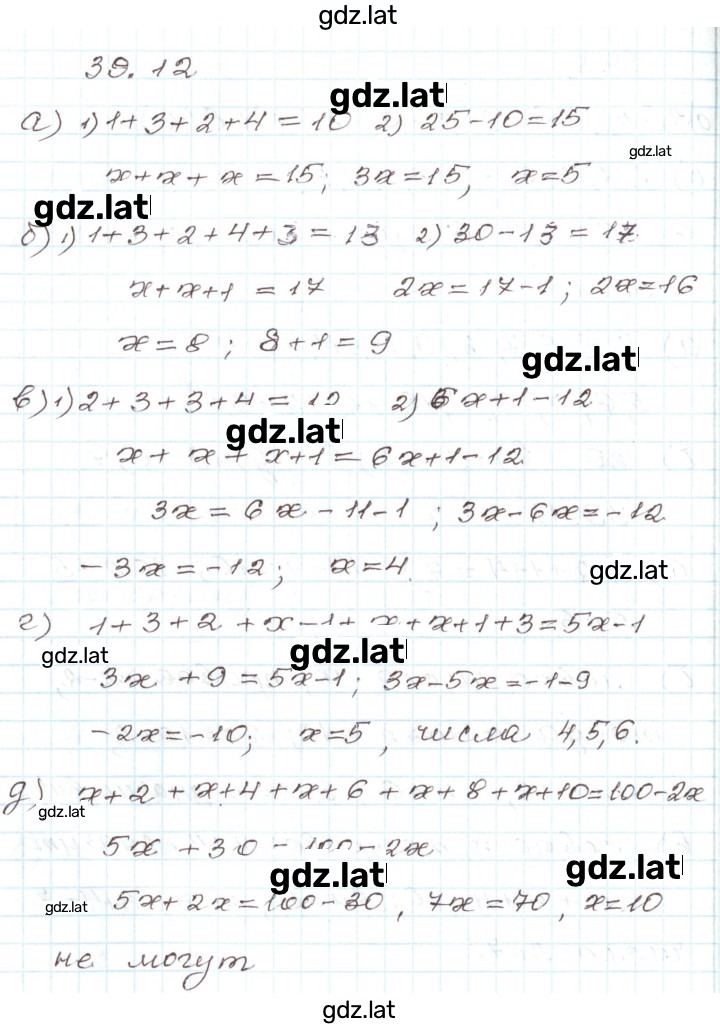 gdz.lat
39.12
gdz.lat
а) 1) 1+3+2+4=10 2) 25-10=15
gdz.lat
x+x+x=15; 3x=15, x=5
gdz.lat
б) 1) 1+3+2+4+3=13 2) 30-13=17
x+x+1=17 2x=17-1; 2x=16
x=8; 8+1=9
gdz.lat
в) 1) 2+3+3+4=12 2) 6x+1-12
gdz.lat
x+x+x+1=6x+1-12
3x=6x-11-1; 3x-6x=-12
-3x=-12; x=4
gdz.lat
г) 1+3+2+x-1+x+x+1+3=5x-1
gdz.lat gdz.lat
3x+9=5x-1; 3x-5x=-1-9
-2x=-10; x=5, числа 4,5,6.
д) x+2+x+4+x+6+x+8+x+10=100-2x
gdz.lat
5x+30=100-2x
gdz.lat gdz.lat
gdz.lat
5x+2x=100-30, 7x=70, x=10
не могут
gdz.lat